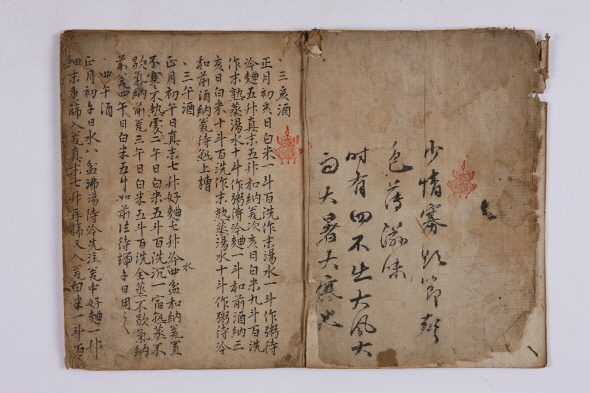 少情寡欲節聲
色薄滋味
時有四不出大風大
雨大暑大寒也
、三亥酒
正月初亥日白米一斗百洗作末一斗作粥待
冷麯五升真末五升和納瓮次亥日白米九斗百洗
作末熟蒸湯水十斗作粥待冷麯一斗和前酒納三
亥日白米十斗百洗作末熟蒸湯水十斗作粥待冷
和前酒納瓮待熟上槽
、三午酒
正月初午日真末七升好麯七升冷水四盆和納瓮置
不寒不熱處二午日白米五斗百洗沉一宿熟蒸不
歇氣納前瓮三午日白米五斗百洗全蒸不歇氣納
前瓮四午日白米五斗如前法待端午日用之
、四午酒
正月初午日水八盆沸湯待冷先注瓮中好麯一升
細末重篩入瓮真末七升再篩又入瓮白米一斗百